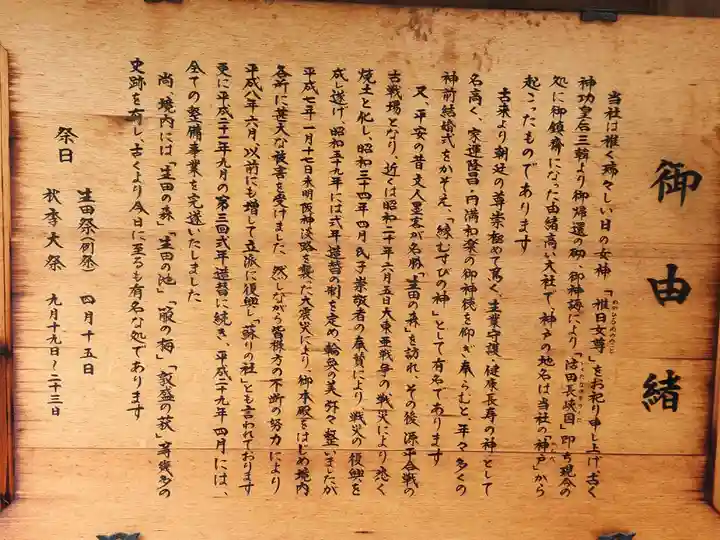 御由緒
当社は稚く瑞々しい日の女神「稚日女尊」をお祀り申し上げ古く
わかひるめのみこと
神功皇后三韓より御帰還の砌、御神誨により「活田長峡国」即ち現今の
いくたながおのくに
処に御鎮齋になった由緒高い大社で、神戸の地名は当社の「神戸」から
かんべ
起こったものであります
古来より朝廷の尊崇極めて篤く、生業守護、健康長寿の神として
名高く、家運隆昌・円満和楽の御神徳を仰ぎ奉らむと、年々多くの
神前結婚式をかぞえ、「縁むすびの神」として有名であります
又、平安の昔文人墨客が名勝「生田の森」を訪れ、その後源平合戦の
古戦場となり、近くは昭和二十年六月五日大東亜戦争の戦災により悉く
焼土と化し、昭和三十四年四月氏子崇敬者の奉賛により戦災の復興を
成し遂げ、昭和五十九年には式年造替の制を定め、輪奐の美弥々整いましたが
平成七年一月十七日未明阪神淡路を襲った大震災により、御本殿をはじめ境内
各所に甚大な被害を受けました、然しながら皆様方の不断の努力により
平成八年六月以前にも増して立派に復興し「蘇りの社」とも言われております
更に平成二十一年九月の第三回式年造替に続き、平成二十九年四月には、
全ての整備事業を完遂いたしました
尚、境内には「生田の森」「生田の池」「箙の梅」「敦盛の萩」等幾多の
史跡を有し、古くより今日に至るも有名な処であります
祭日
生田祭(例祭) 四月十五日
秋季大祭 九月十九日～二十三日